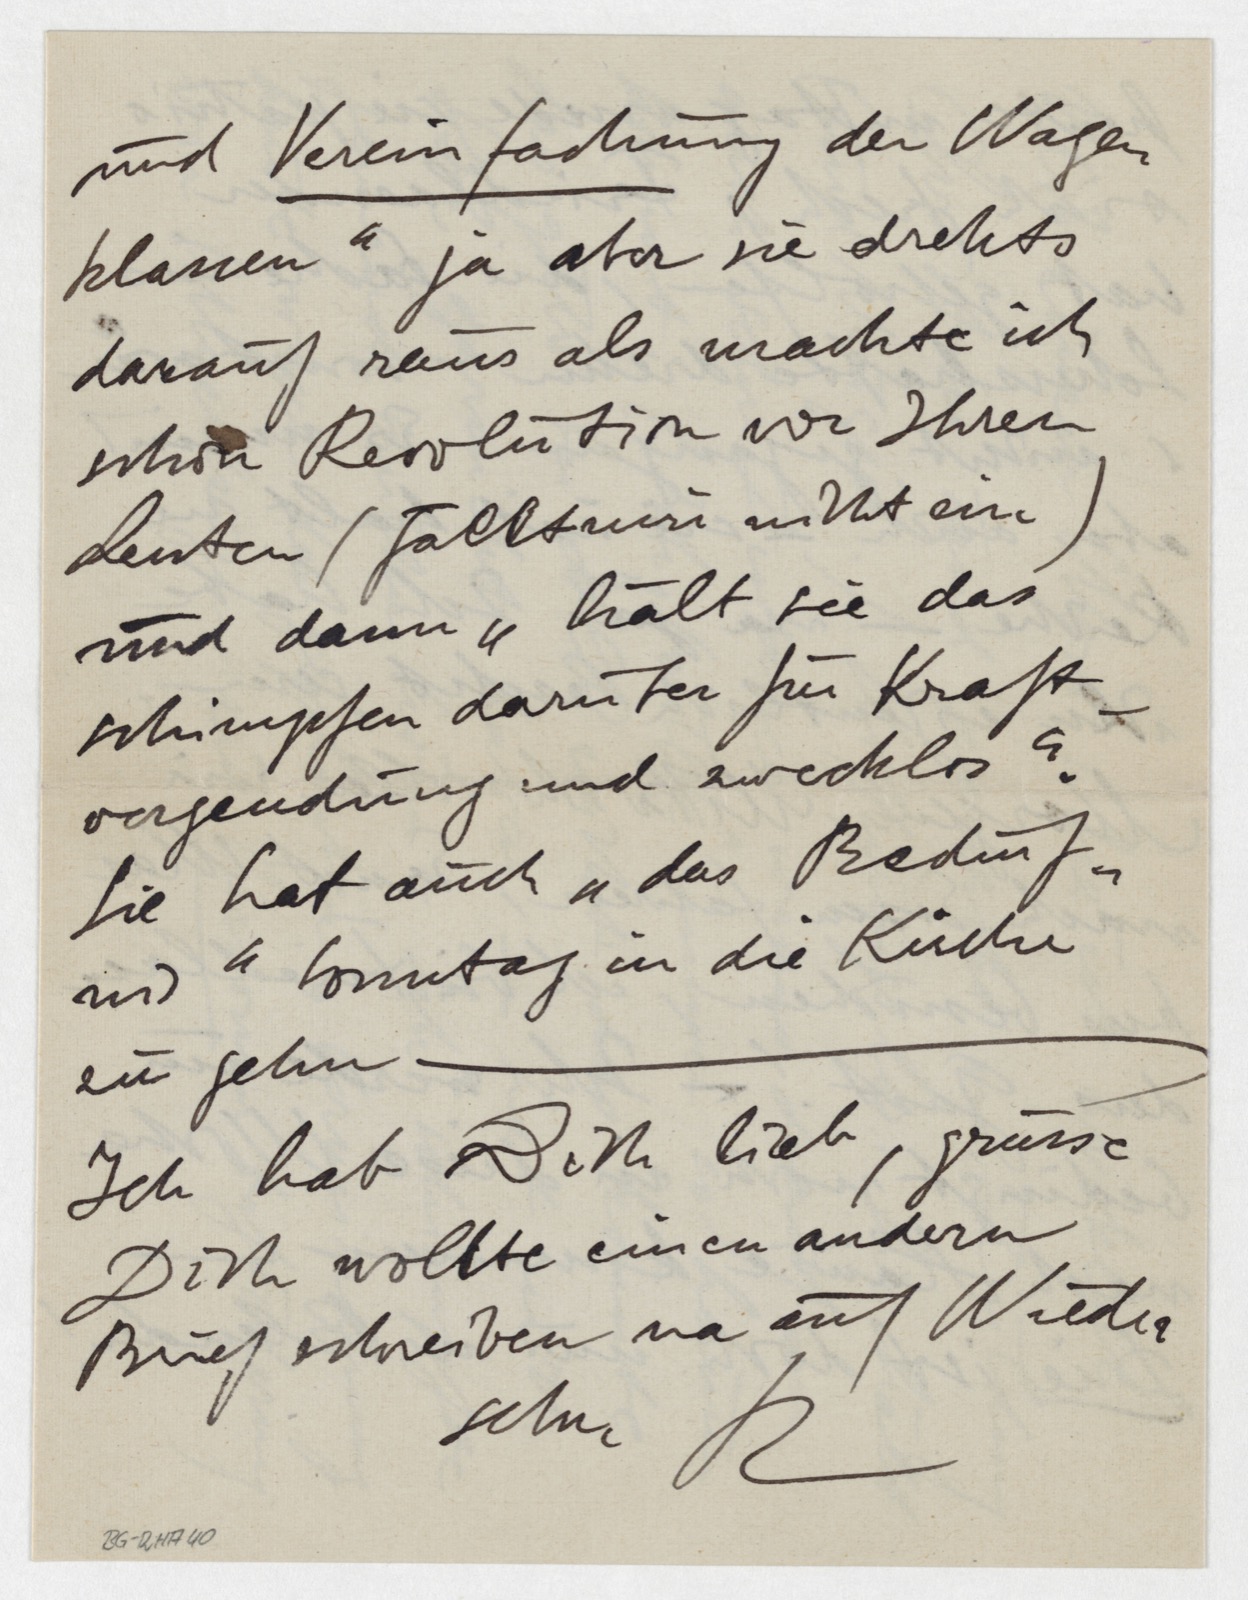 und Vereinfachung der Wagen
klassen" ja aber sie drehts
darauf raus als machte ich
schon Revolution vor Ihren
Leuten ( fällt mir nicht ein )
und dann „ hält sie das
schimpfen darüber für Kraft-
vergeudung und zwecklos".
Sie hat auch „ das Bedürf-
nis " Sonntag in die Küche
zu gehn
Ich hab Dich lieb, grüsse
Dich wollte einen andern
Brief schreiben na auf Wieder
sehn. R
BG-RHA 40